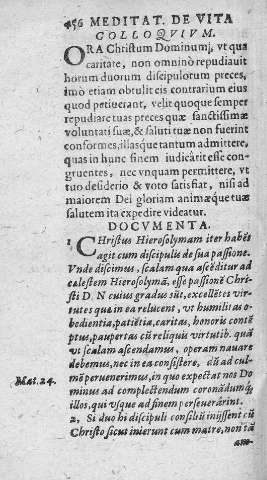 456 MEDITAT. DE VITA
COLLOQVIVM.
ORA Christum Dominumj, vt qua
caritate, non omninò repudiauit
horum duorum discipulorum preces,
imò etiam obtulit eis contrarium eius
quod petiuerant, velit quoque semper
repudiare tuas preces quæ sanctissimæ
voluntati suæ, & saluti tuæ non fuerint
conformes; illasque tantum admittere,
quas in hunc finem iudicârit esse con-
gruentes, nec vnquam permittere, vt
tuo desiderio & voto satisfiat, nisi ad
maiorem Dei gloriam animæque tuæ
salutem ita expedire videatur.
DOCVMENTA.
1 CHristus Hierosolymam iter habēs
agit cum discipulis de sua passione.
Vnde discimus, scalam qua ascēditur ad
cælestem Hierosolymā, esse passionē Chri-
sti D. N cuius gradus sūt, excellētes vir-
tutes quæ in ea relucent, vt humilitas o-
bedientia, patiētia, caritas, honoris contē
ptus, paupertas cū reliquis virtutib. quā
vt scalam ascendamus, operam nauare
debemus, nec in ea consistere, cū ad cul-
Mat. 24. mē peruenerimus, in quo expectat nos Do
minus ad complectendum coronādumq́;
illos, qui vsque ad finem perseuerârint.
2, Si duo hi discipuli consiliū inijssent cū
Christo sicut inierunt cum matre, non tā
am-